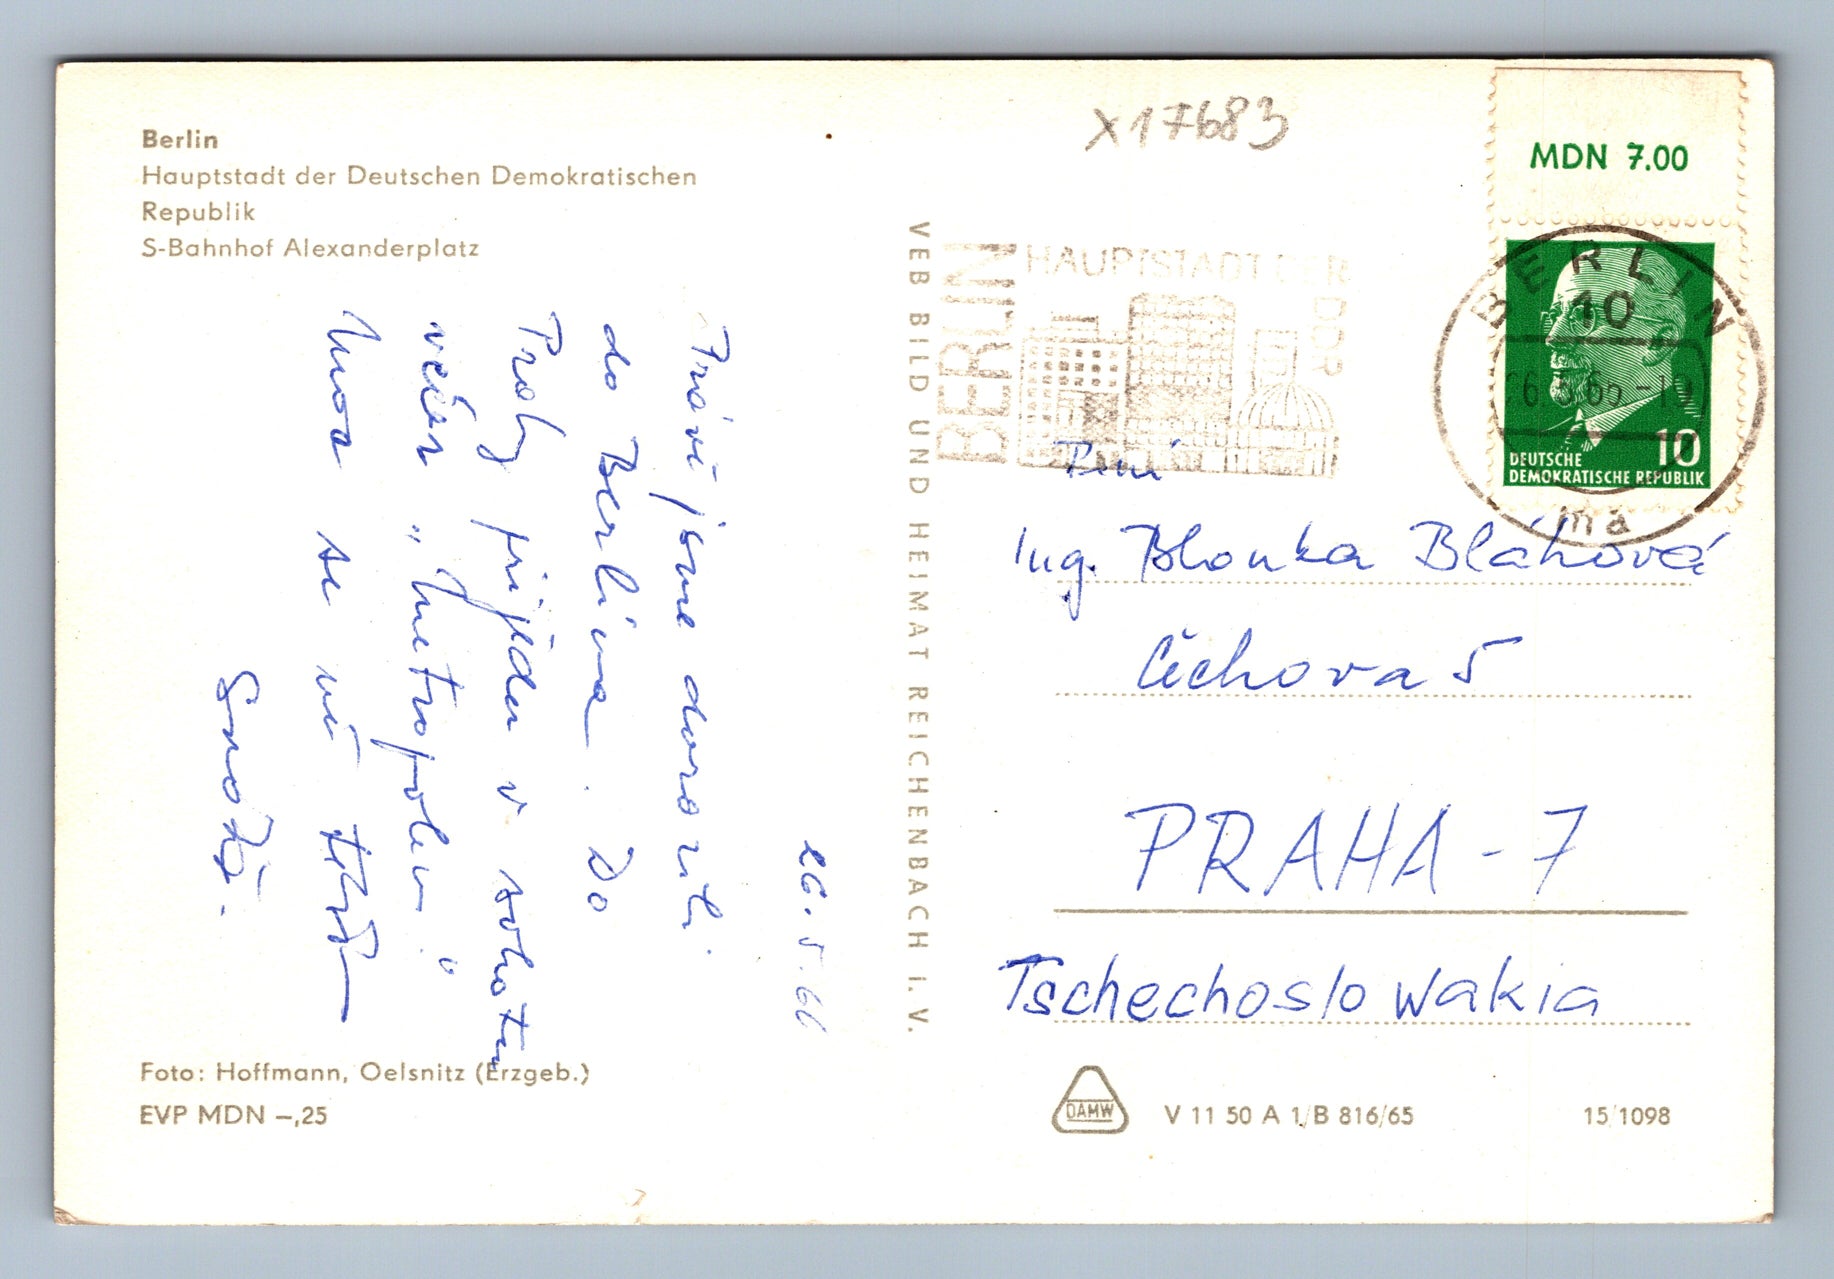 Berlin
Hauptstadt der Deutschen Demokratischen
Republik
S-Bahnhof Alexanderplatz
26.5.66
Právě jsme dorazili
do Berlína. Do
Prahy přijedu v sobotu
večer „Metropolem“
Moc se na Tebe
Foto: Hoffmann, Oelsnitz (Erzgeb.)
EVP MDN –,25
VEB BILD UND HEIMAT REICHENBACH I. V.
X17683
MDN 7.00
BERLIN
HAUPTSTADT DER
DDR
BERLIN
10
ma
10
DEUTSCHE
DEMOKRATISCHE REPUBLIK
Paní
Ing. Blanka Bláhová
Čechova 5
PRAHA - 7
Tschechoslowakia
DAMW
V 11 50 A 1/B 816/65
15/1098